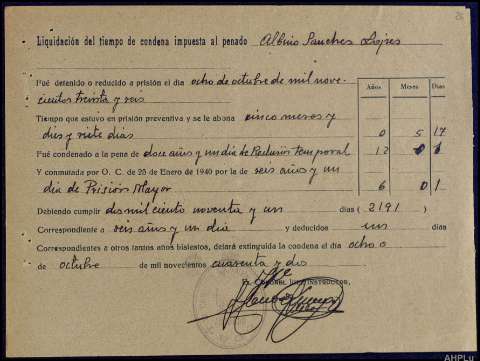 26
Liquidación del tiempo de condena impuesta al penado Albino Sanchez Lopes
Fué detenido o reducido a prisión el día ocho de octubre de mil nove-
cientos treinta y seis
Años Meses Días
Tiempo que estuvo en prisión preventiva y se le abona cinco meses y
diez y siete días 0 5 17
Fué condenado a la pena de doce años y un día de Reclusión temporal 12 0 1
Y conmutada por O. C. de 25 de Enero de 1940 por la de seis años y un
día de Prisión Mayor 6 0 1
Debiendo cumplir dos mil ciento noventa y un días (2191)
Correspondiente a seis años y un día y deducidos un días
Correspondientes a otros tantos años bisiestos, dejará extinguida la condena el día ocho
de octubre de mil novecientos cuarenta y dos
EL CORONEL JUEZ INSTRUCTOR,
AHPLu